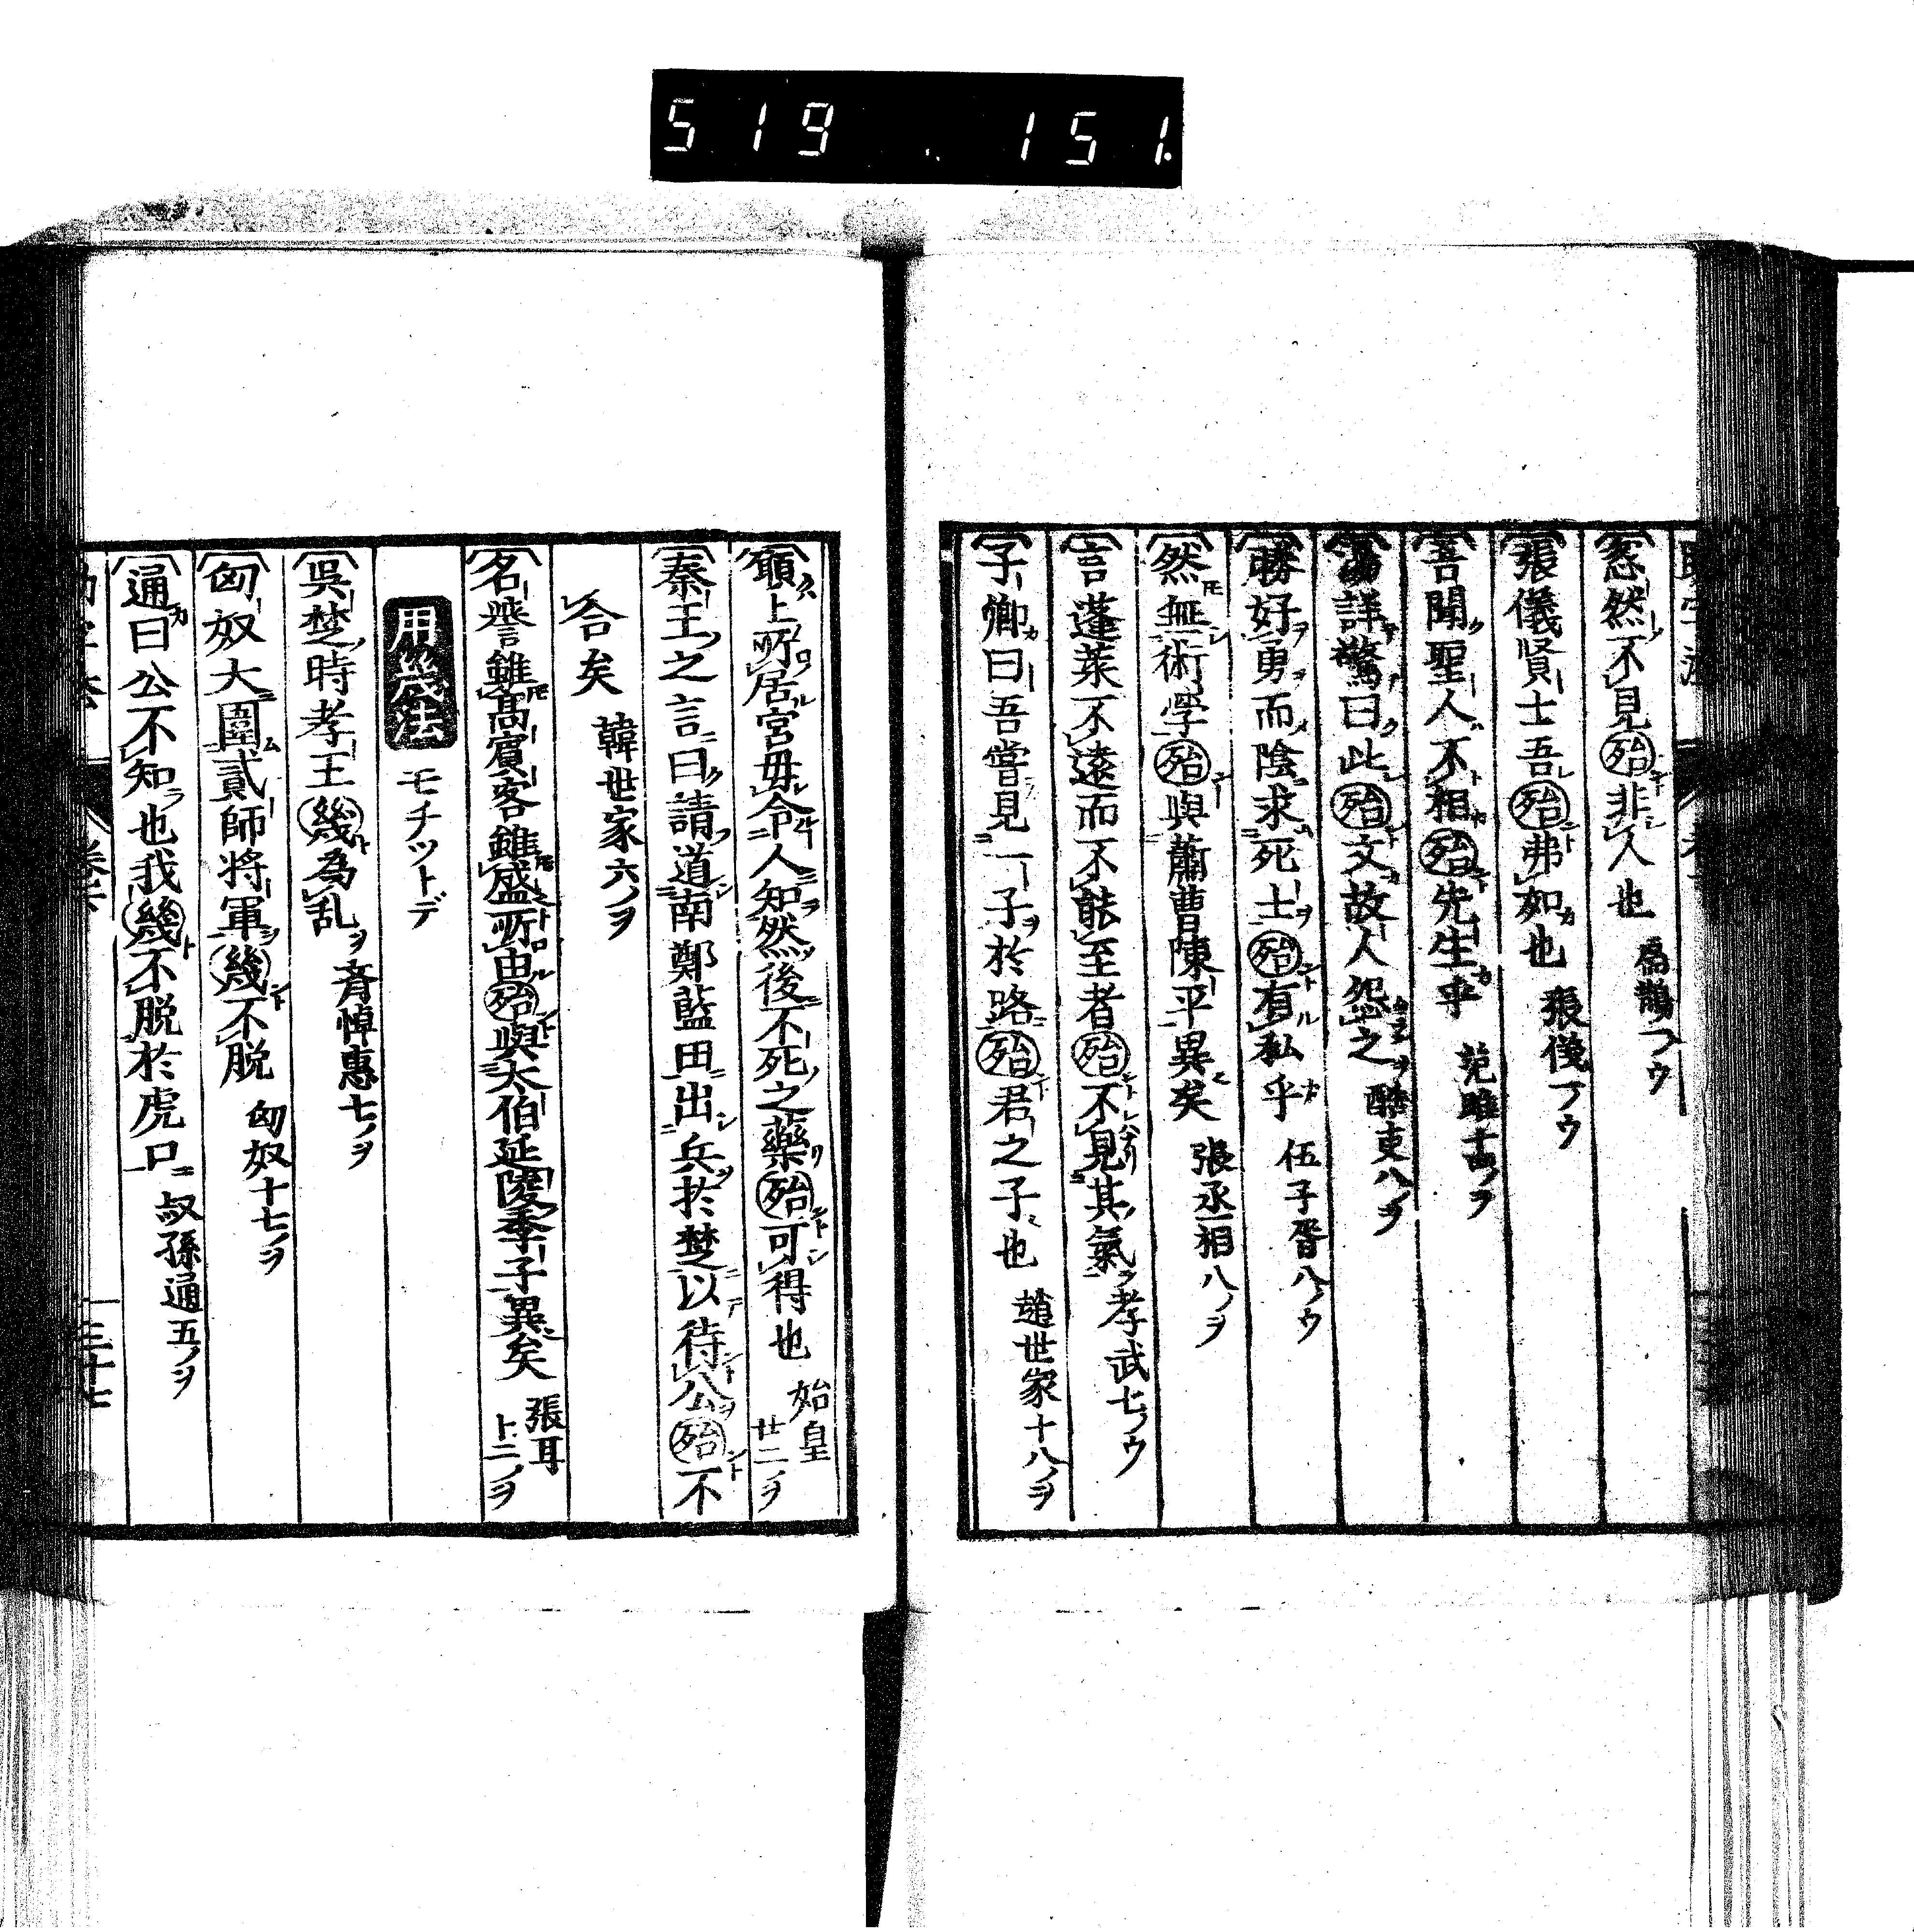 519 151
忽然不見殆非人也 扁鵲一ノウ
張儀賢士吾殆弗如也 張儀一ノウ
吾聞聖人不相殆先生乎 范雎十四ノヲ
湯詳驚曰此殆文故人怨之 酷吏八ノヲ
勝好勇而陰求死士殆有私乎 伍子胥八ノウ
然無術學殆與蕭曹陳平異矣 張丞相八ノヲ
言蓬萊不遠而不能至者殆不見其氣 孝武七ノウ
子卿曰吾嘗見一子於路殆君之子也 趙世家十八ノヲ
願上所居宮毋令人知然後不死之藥殆可得也 始皇廿二ノヲ
秦王之言曰請道南鄭藍田出兵於楚以待公殆不
合矣 韓世家六ノヲ
名譽雖高賓客雖盛所由殆與太伯延陵季子異矣 張耳十二ノヲ
用幾法 モチツトデ
吳楚時孝王幾為乱 斉悼惠七ノヲ
匈奴大圍貳師将軍幾不脱 匈奴十七ノヲ
通曰公不知也我幾不脱於虎口 叔孫通五ノヲ
三十七